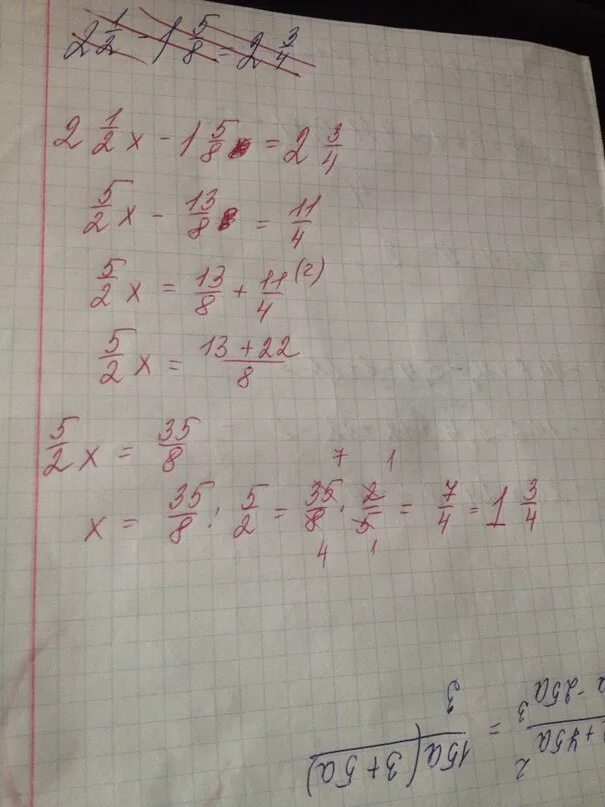 2 1/2 - 1 5/8 = 2 3/4
2 1/2 x - 1 5/8 = 2 3/4
5/2 x - 13/8 = 11/4
5/2 x = 13/8 + 11/4 (2)
5/2 x = 13+22/8
5/2 x = 35/8
x = 35/8 : 5/2 = 35/8 · 2/5 = 7/4 = 1 3/4
7 1
4 1
15a(3+5a)
3